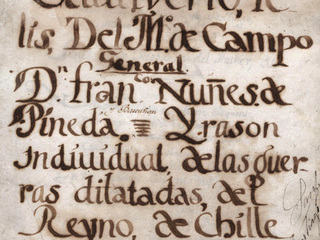 Cautiverio, fe
lis, Del Mº. de Campo
General
Dⁿ. fran.ᶜᵒ Nuñes. de
y Bascuñan
Pineda. Y. rason
indiuidual, de las guer
ras dilatadas, del
Reyno, de Chille